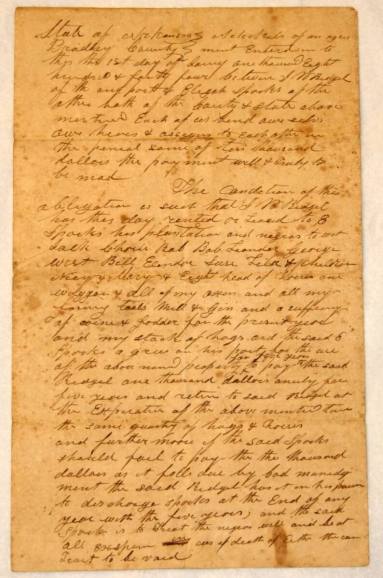 State of Arkansas articles of an agree
Bradley County ment Enterd in to
this the 1st day of one thousand Eight
hundred & fourty four between J R Ridgel
of the one part & Elijah Spooks of the
other both of the County & State above
mentined Each of us bind our selves
our heires & assigns to Each other in
the penial some of ten thousand
dollars the payment well & truly to
be mad
The Condetion of this
obligation is such that J R Ridgel
has this day rented or leased to E
Spooks his plantation and negros to wit
Jack Rob Bob Leander George
West Bill Leander &
Henry Mary & Eight head of horses one
& all of my oxen and all my
tools Mill & Gin and a
of corne & fodder for the present year
and my stock of hogs and the said E
Spooks a grees on his part for the use
of the above named property to pay the said
for five years
Ridgel one thousand dollars anuly for
five years and return to said Ridgel at
the Experation of the above mentined time
the same quantity of hogs & horses
and further moore if the said Spooks
should fail to pay the the thousand
dollars as it falls due by bad manedg
ment the said Ridgel has it in his power
to discharge Spooks at the End of any
year with the five years, and the said
Spooks is to treat the negros well and be at
all expence in case of death of Either the con
tract to be void